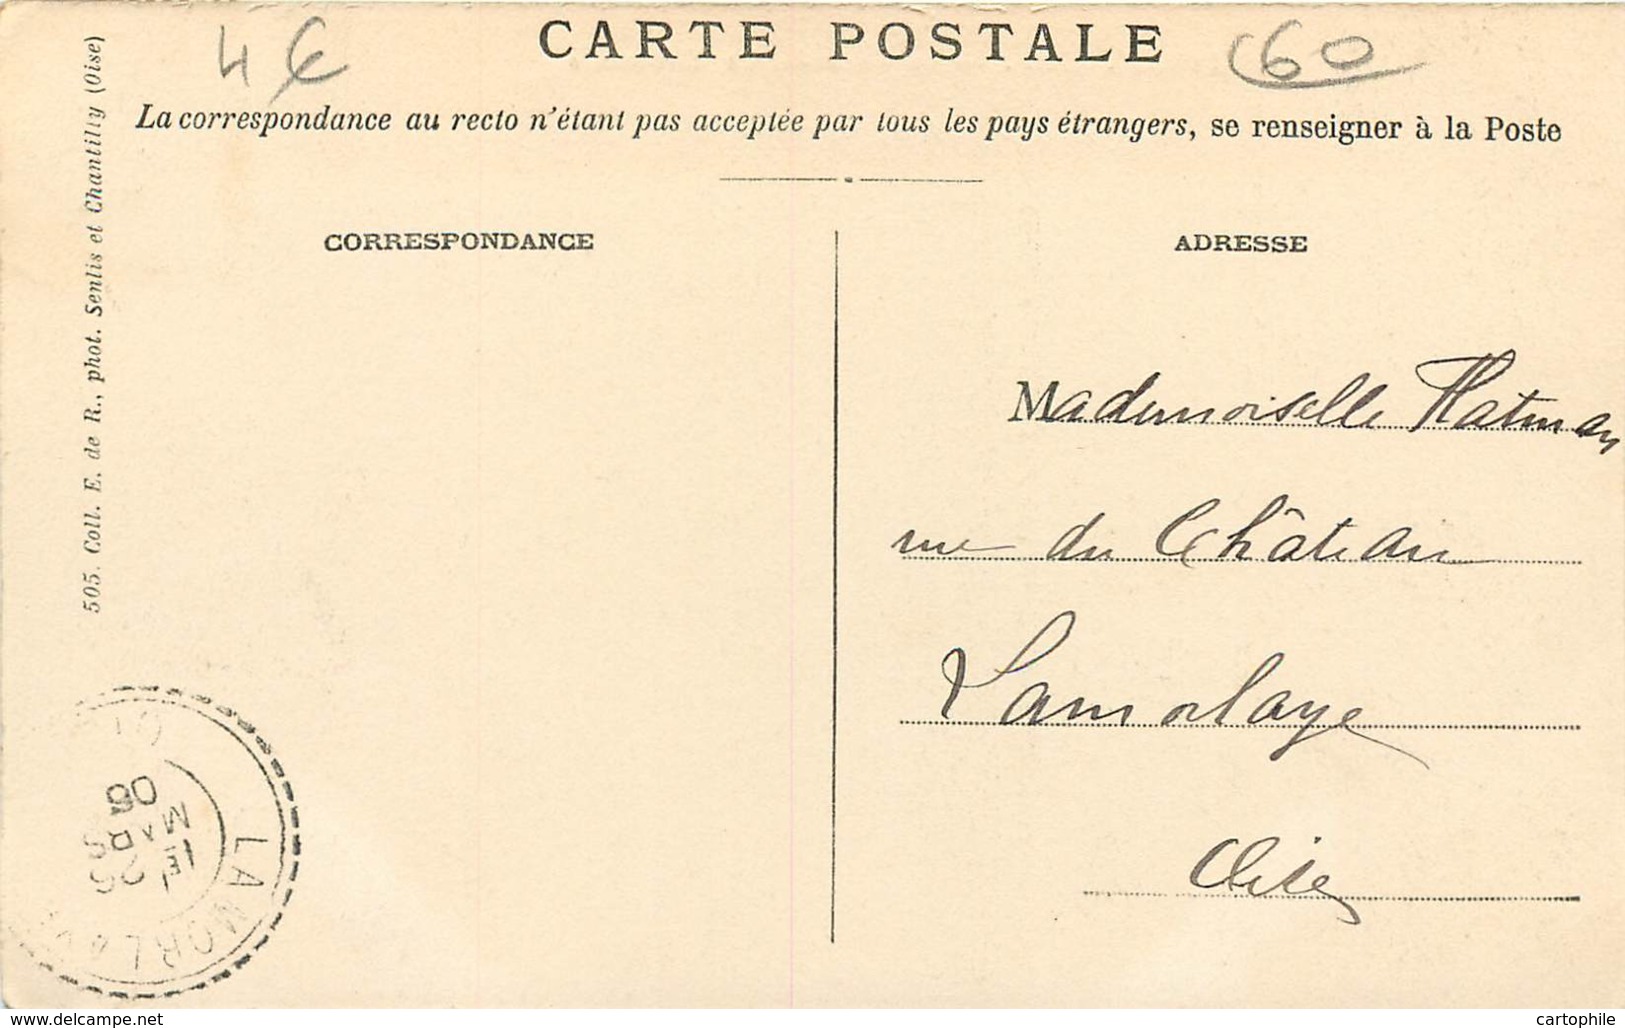 4€
CARTE POSTALE
60
La correspondance au recto n'étant pas acceptée par tous les pays étrangers, se renseigner à la Poste
505. Coll. E. de R., phot. Senlis et Chantilly (Oise)
CORRESPONDANCE
ADRESSE
Mademoiselle
rue du Château
Lamorlaye
Oise
LAMORLAY
MARS
www.delcampe.net
cartophile